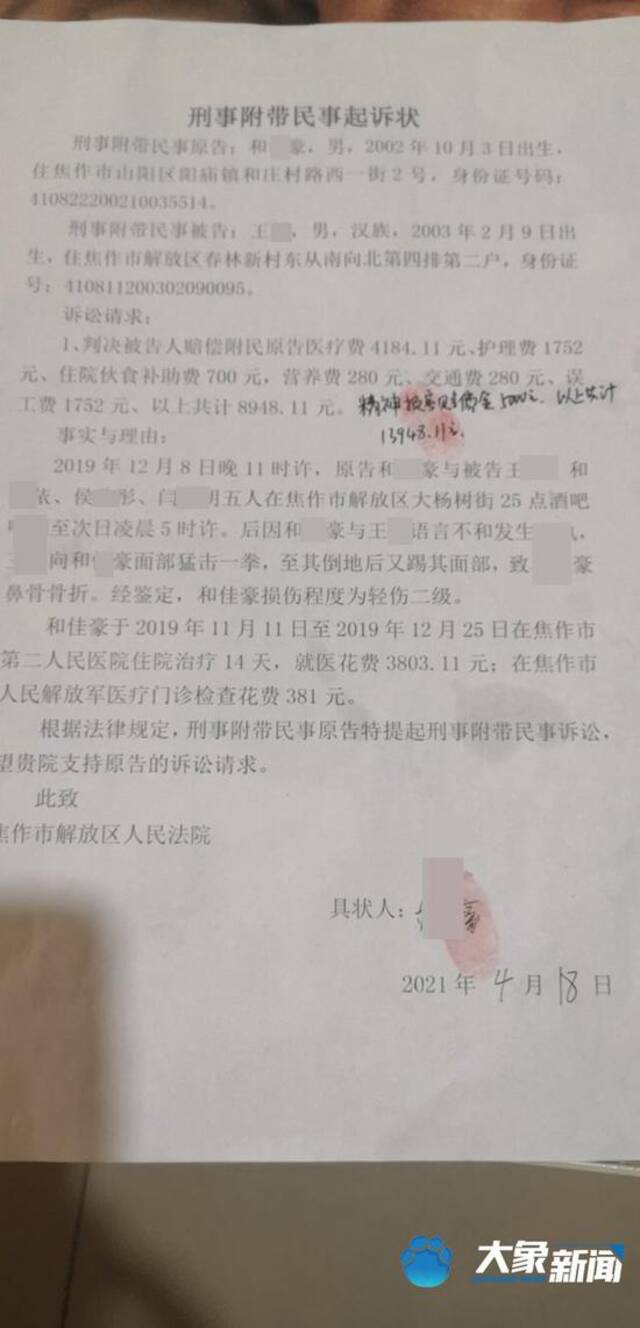 刑事附带民事起诉状
刑事附带民事原告：和 豪，男，2002年10月3日出生，
住焦作市山阳区阳庙镇和庄村路西一街2号，身份证号码：
410822200210035514。
刑事附带民事被告：王 ，男，汉族，2003年2月9日出
生，住焦作市解放区春林新村东从南向北第四排第二户，身份证
号：410811200302090095。
诉讼请求：
1、判决被告人赔偿附民原告医疗费4184.11元、护理费1752
元、住院伙食补助费700元，营养费280元、交通费280元、误
工费1752元、以上共计8948.11元。精神损害赔偿金5000元．以上共计
13948.11元．
事实与理由：
2019年12月8日晚11时许，原告和 豪与被告王 和
依、侯 彤、闫 明五人在焦作市解放区大杨树街25点酒吧
至次日凌晨5时许。后因和 豪与王 语言不和发生 ，
王 向和 豪面部猛击一拳，至其倒地后又踢其面部，致 豪
鼻骨骨折。经鉴定，和佳豪损伤程度为轻伤二级。
和佳豪于2019年11月11日至2019年12月25日在焦作市
第二人民医院住院治疗14天，就医花费3803.11元；在焦作市
人民解放军医疗门诊检查花费381元。
根据法律规定，刑事附带民事原告特提起刑事附带民事诉讼，
望贵院支持原告的诉讼请求。
此致
焦作市解放区人民法院
具状人： 豪
2021年4月18日
大象新闻